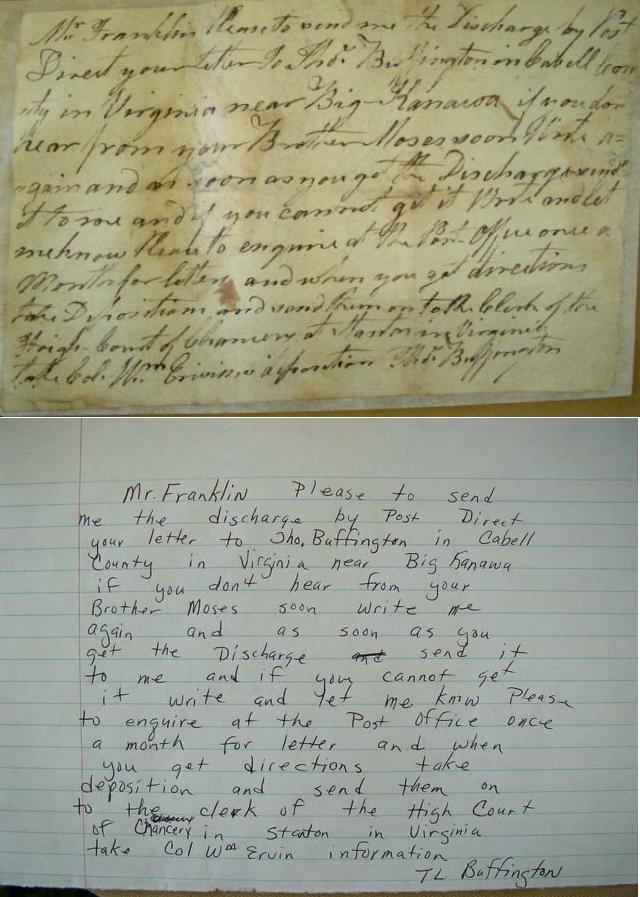 Mr Franklin Please to send me the Discharge by Post
Direct your letter To Thos. Buffington in Cabell Coun
ty in Virginia near Big Kanawa if you don
hear from your Brother Moses soon Write a=
gain and as soon as you get the Discharge send
it to me and if you cannot get it Write and let
me know Please to enquire at the Post Office once a
Month for letters and when you get directions
take Depositions and send them on to the Clerk of the
High Court of Chancery at Stanton in Virginia
take Col. Wm Ervins deposition Thos. Buffington
Mr. Franklin Please to send
me the discharge by Post Direct
your letter to Tho. Buffington in Cabell
County in Virginia near Big Kanawa
if you don't hear from your
Brother Moses soon write me
again and as soon as you
get the Discharge and send it
to me and if you cannot get
it write and let me know Please
to enquire at the Post Office once
a month for letter and when
you get directions take
deposition and send them on
to the clerk of the High Court
of Chancery in Stanton in Virginia
take Col Wm Ervin information
TL Buffington